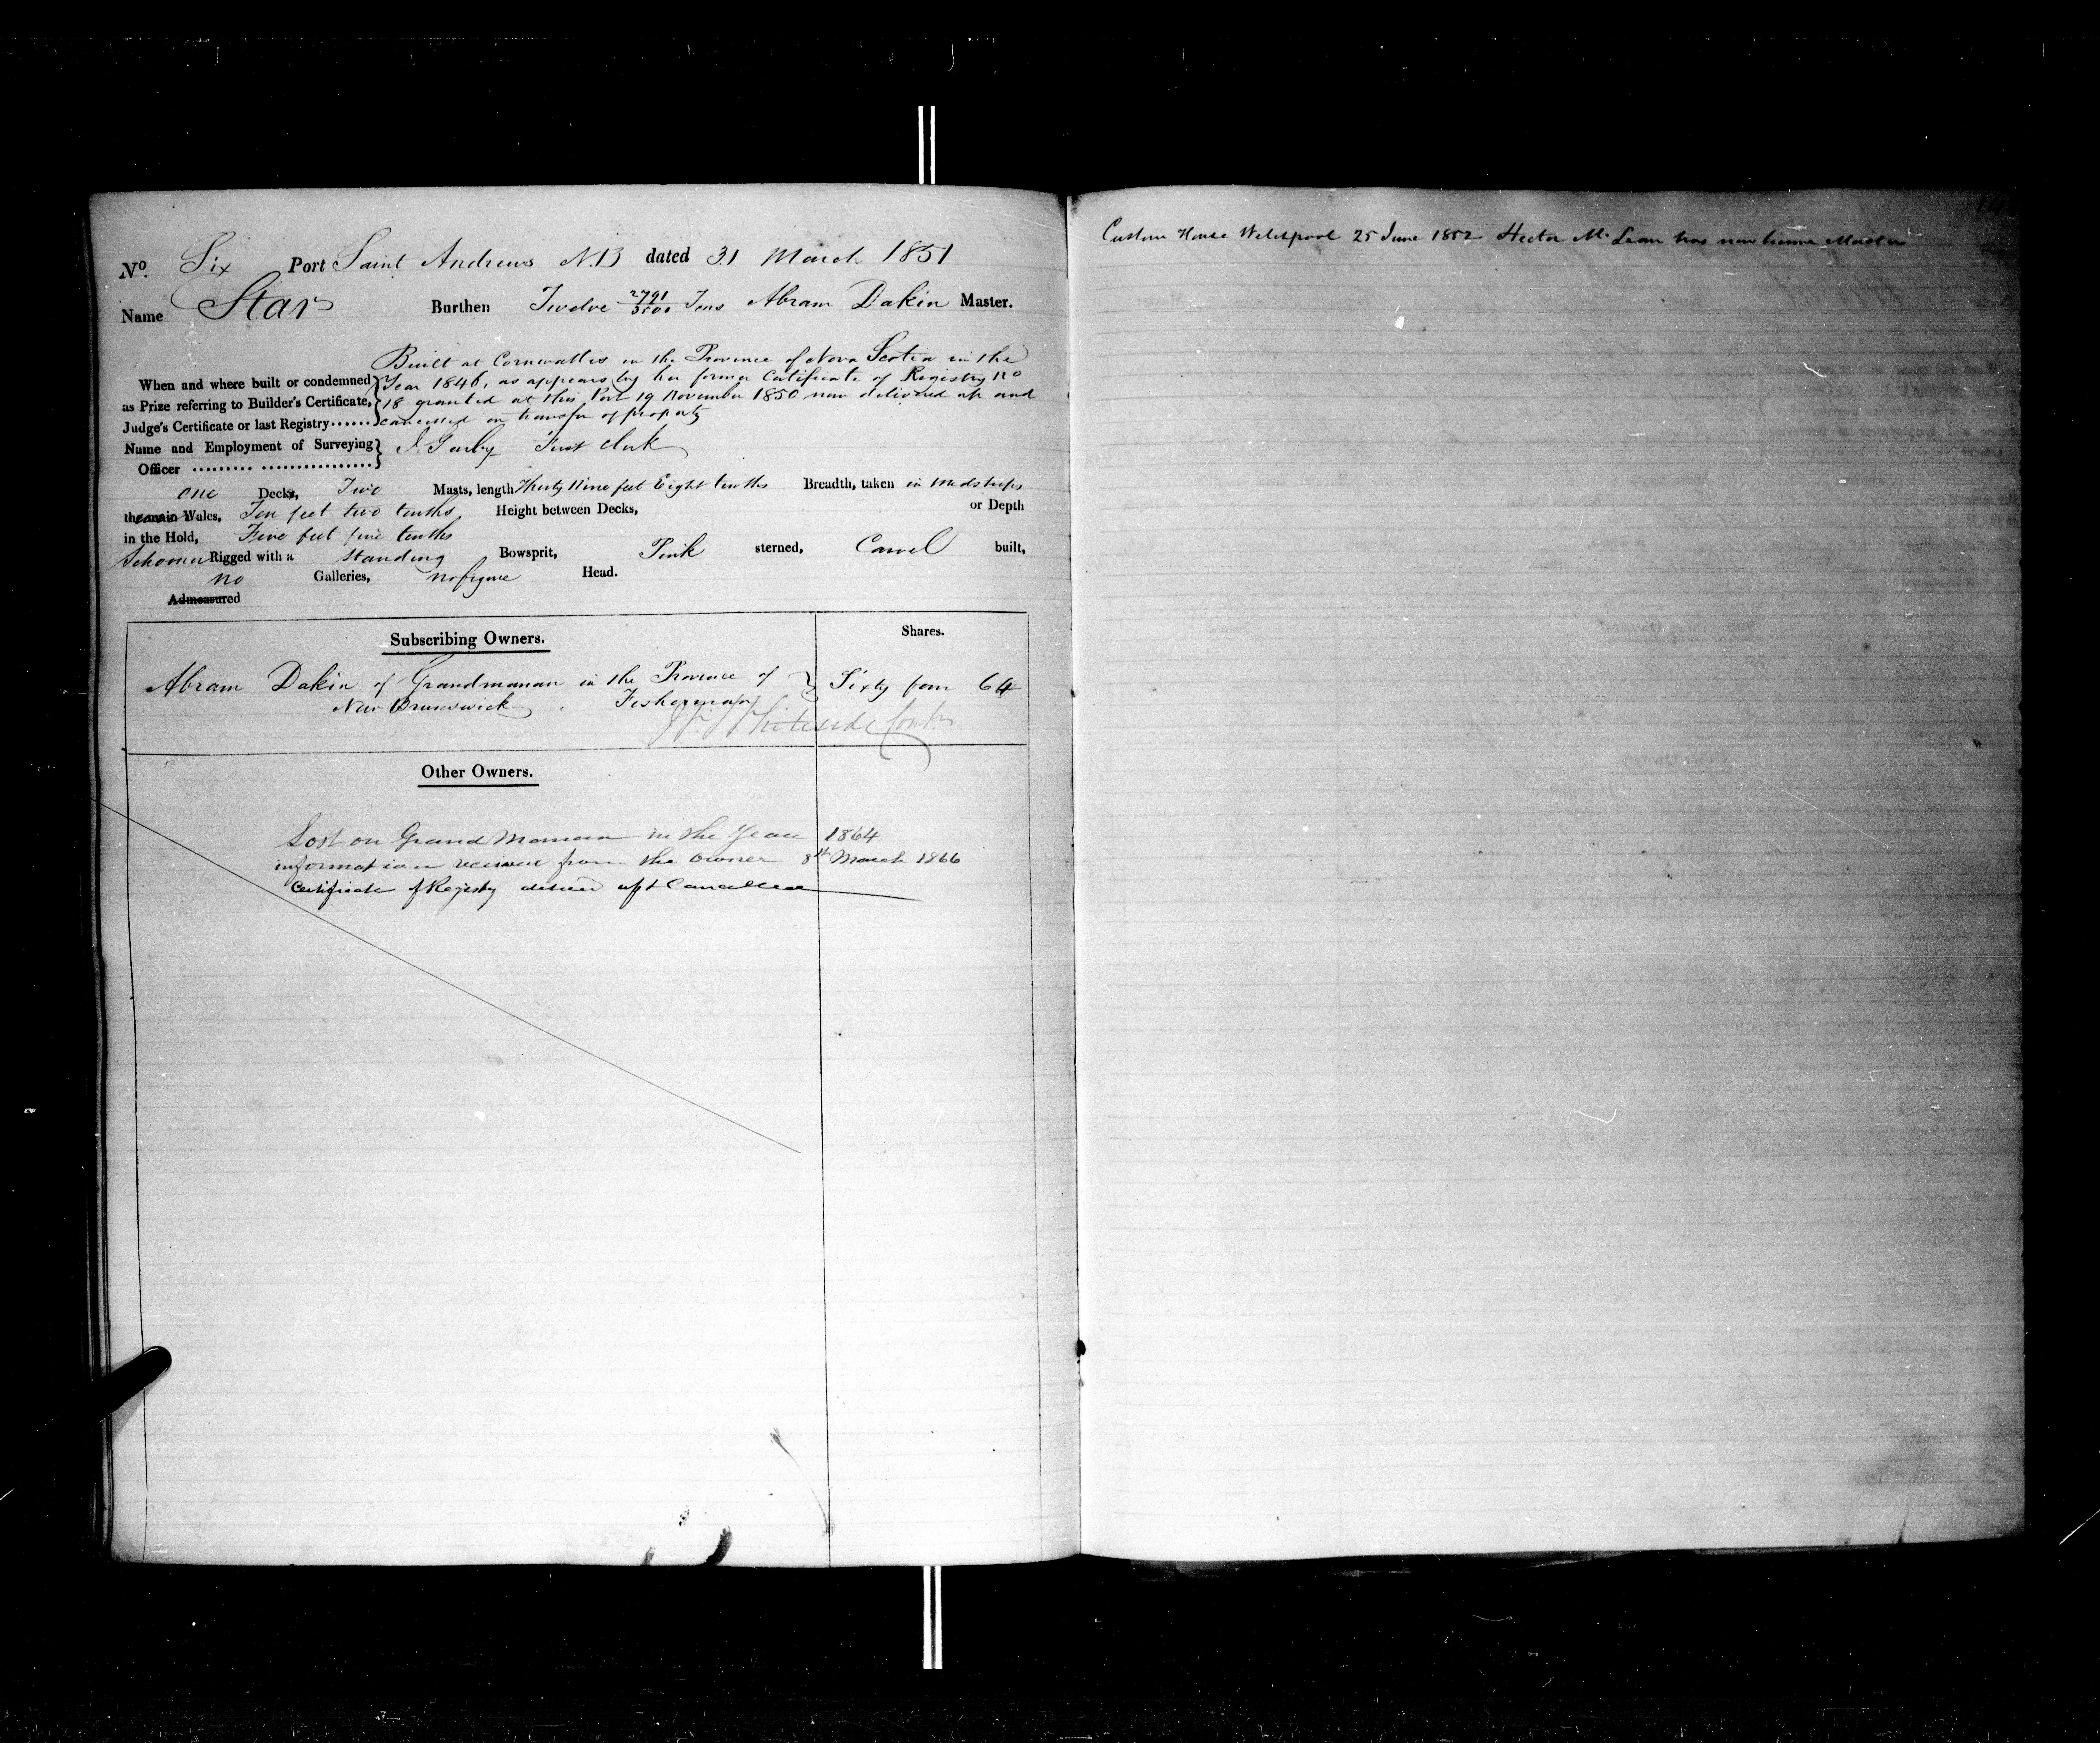 No. Six Port Saint Andrews N.B dated 31 March 1851
Name Star Burthen Twelve 2791/3500 Tons Abram Dakin Master.
Built at Cornwallis in the Province of Nova Scotia in the
When and where built or condemned } Year 1846, as appears by her former Certificate of Registry no
as Prize referring to Builder's Certificate, 18 granted at this Port 19 November 1850 now delivered up and
Judge's Certificate or last Registry...... cancelled on transfer of property
Name and Employment of Surveying } First Clerk
Officer
one Decks, Two Masts, length Thirty Nine feet Eight tenths Breadth, taken in Midships
the main Wales, Ten feet two tenths, Height between Decks, or Depth
in the Hold, Five feet five tenths
Schooner Rigged with a standing Bowsprit, Pink sterned, Carvel built,
no Galleries, no figure Head.
Admeasured
Subscribing Owners. Shares.
Abram Dakin of Grandmanan in the Province of } Sixty four 64
New Brunswick Fisherman
Whiteside Contr
Other Owners.
Lost on Grand Manan in the Year 1864
information received from the owner 8th March 1866
Certificate of Registry delivered up & Cancelled
Custom House Welchpool 25 June 1852 Hector Mc Lean has now become Master